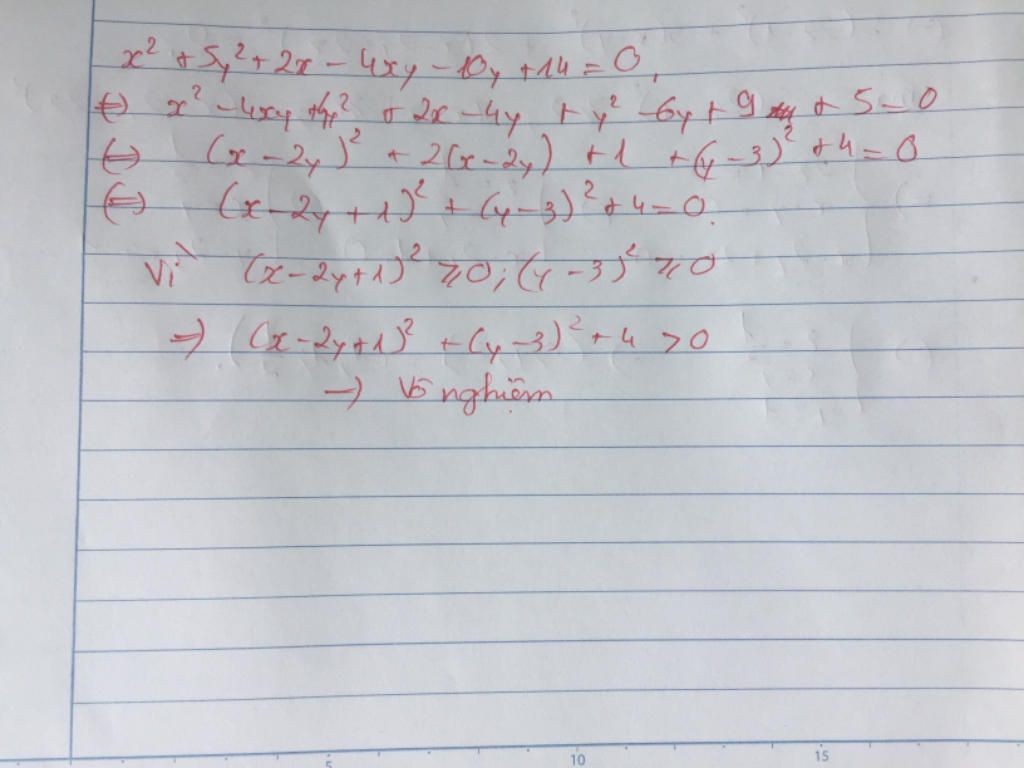 x² + 5y² + 2x - 4xy - 10y + 14 = 0,
⇔ x² - 4xy + 4y² + 2x - 4y + y² - 6y + 9 + 5 = 0
⇔ (x - 2y)² + 2(x - 2y) + 1 + (y - 3)² + 4 = 0
⇔ (x - 2y + 1)² + (y - 3)² + 4 = 0.
Vì (x - 2y + 1)² ≥ 0; (y - 3)² ≥ 0
⇒ (x - 2y + 1)² + (y - 3)² + 4 > 0
→ Vô nghiệm
5 10 15